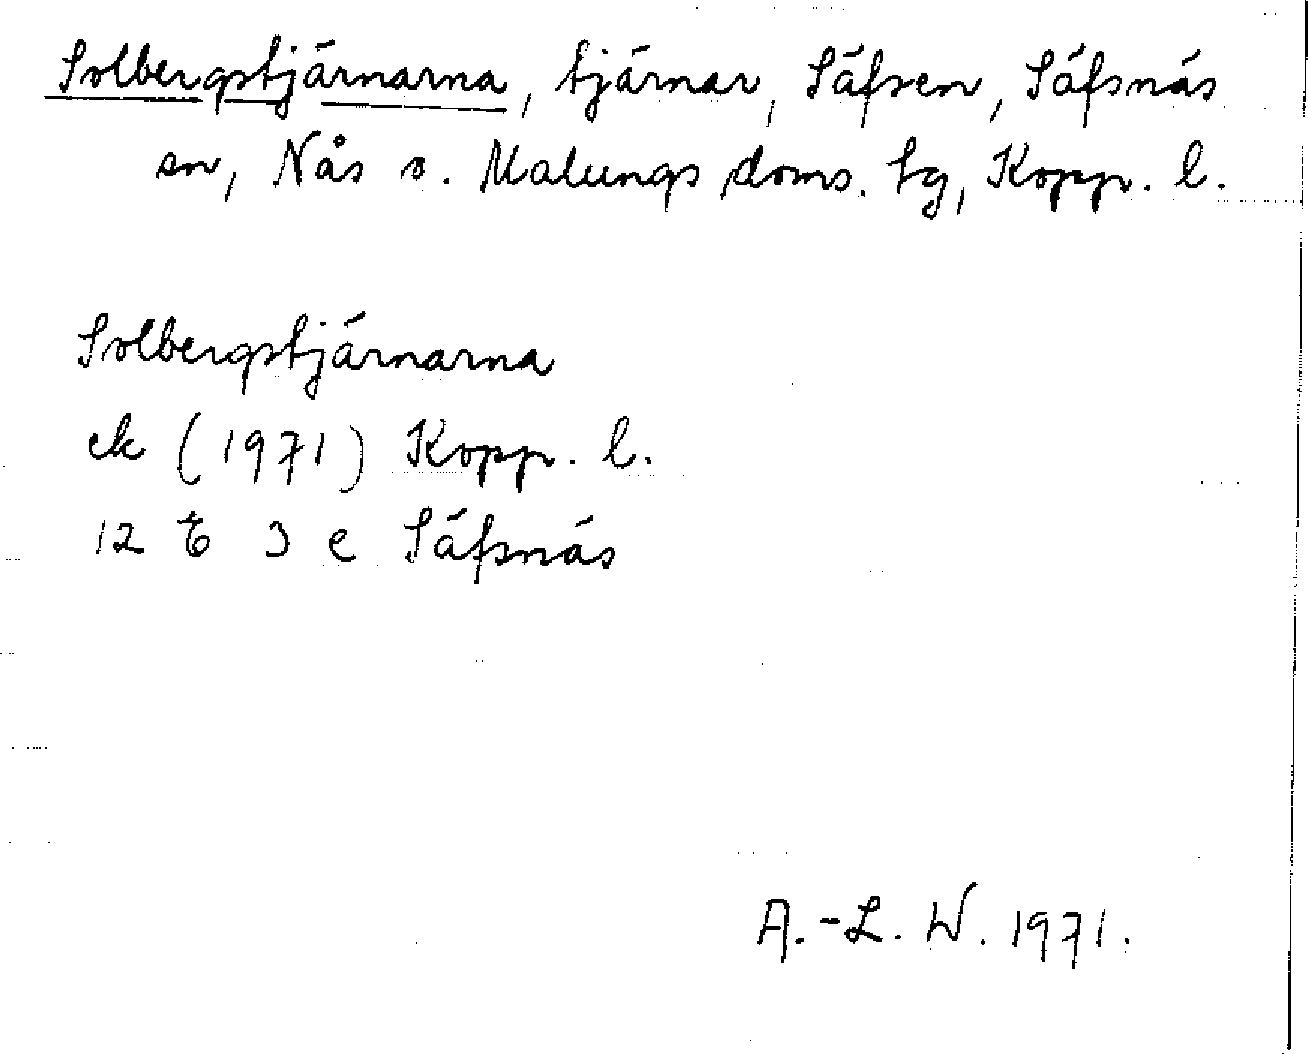 Solbergstjärnarna, tjärnar, Säfsen, Säfsnäs
sn, Nås o. Malungs doms. tg, Kopp. l.
Solbergstjärnarna
ek (1971) Kopp. l.
12 E 3 e Säfsnäs
A.-L. W. 1971.